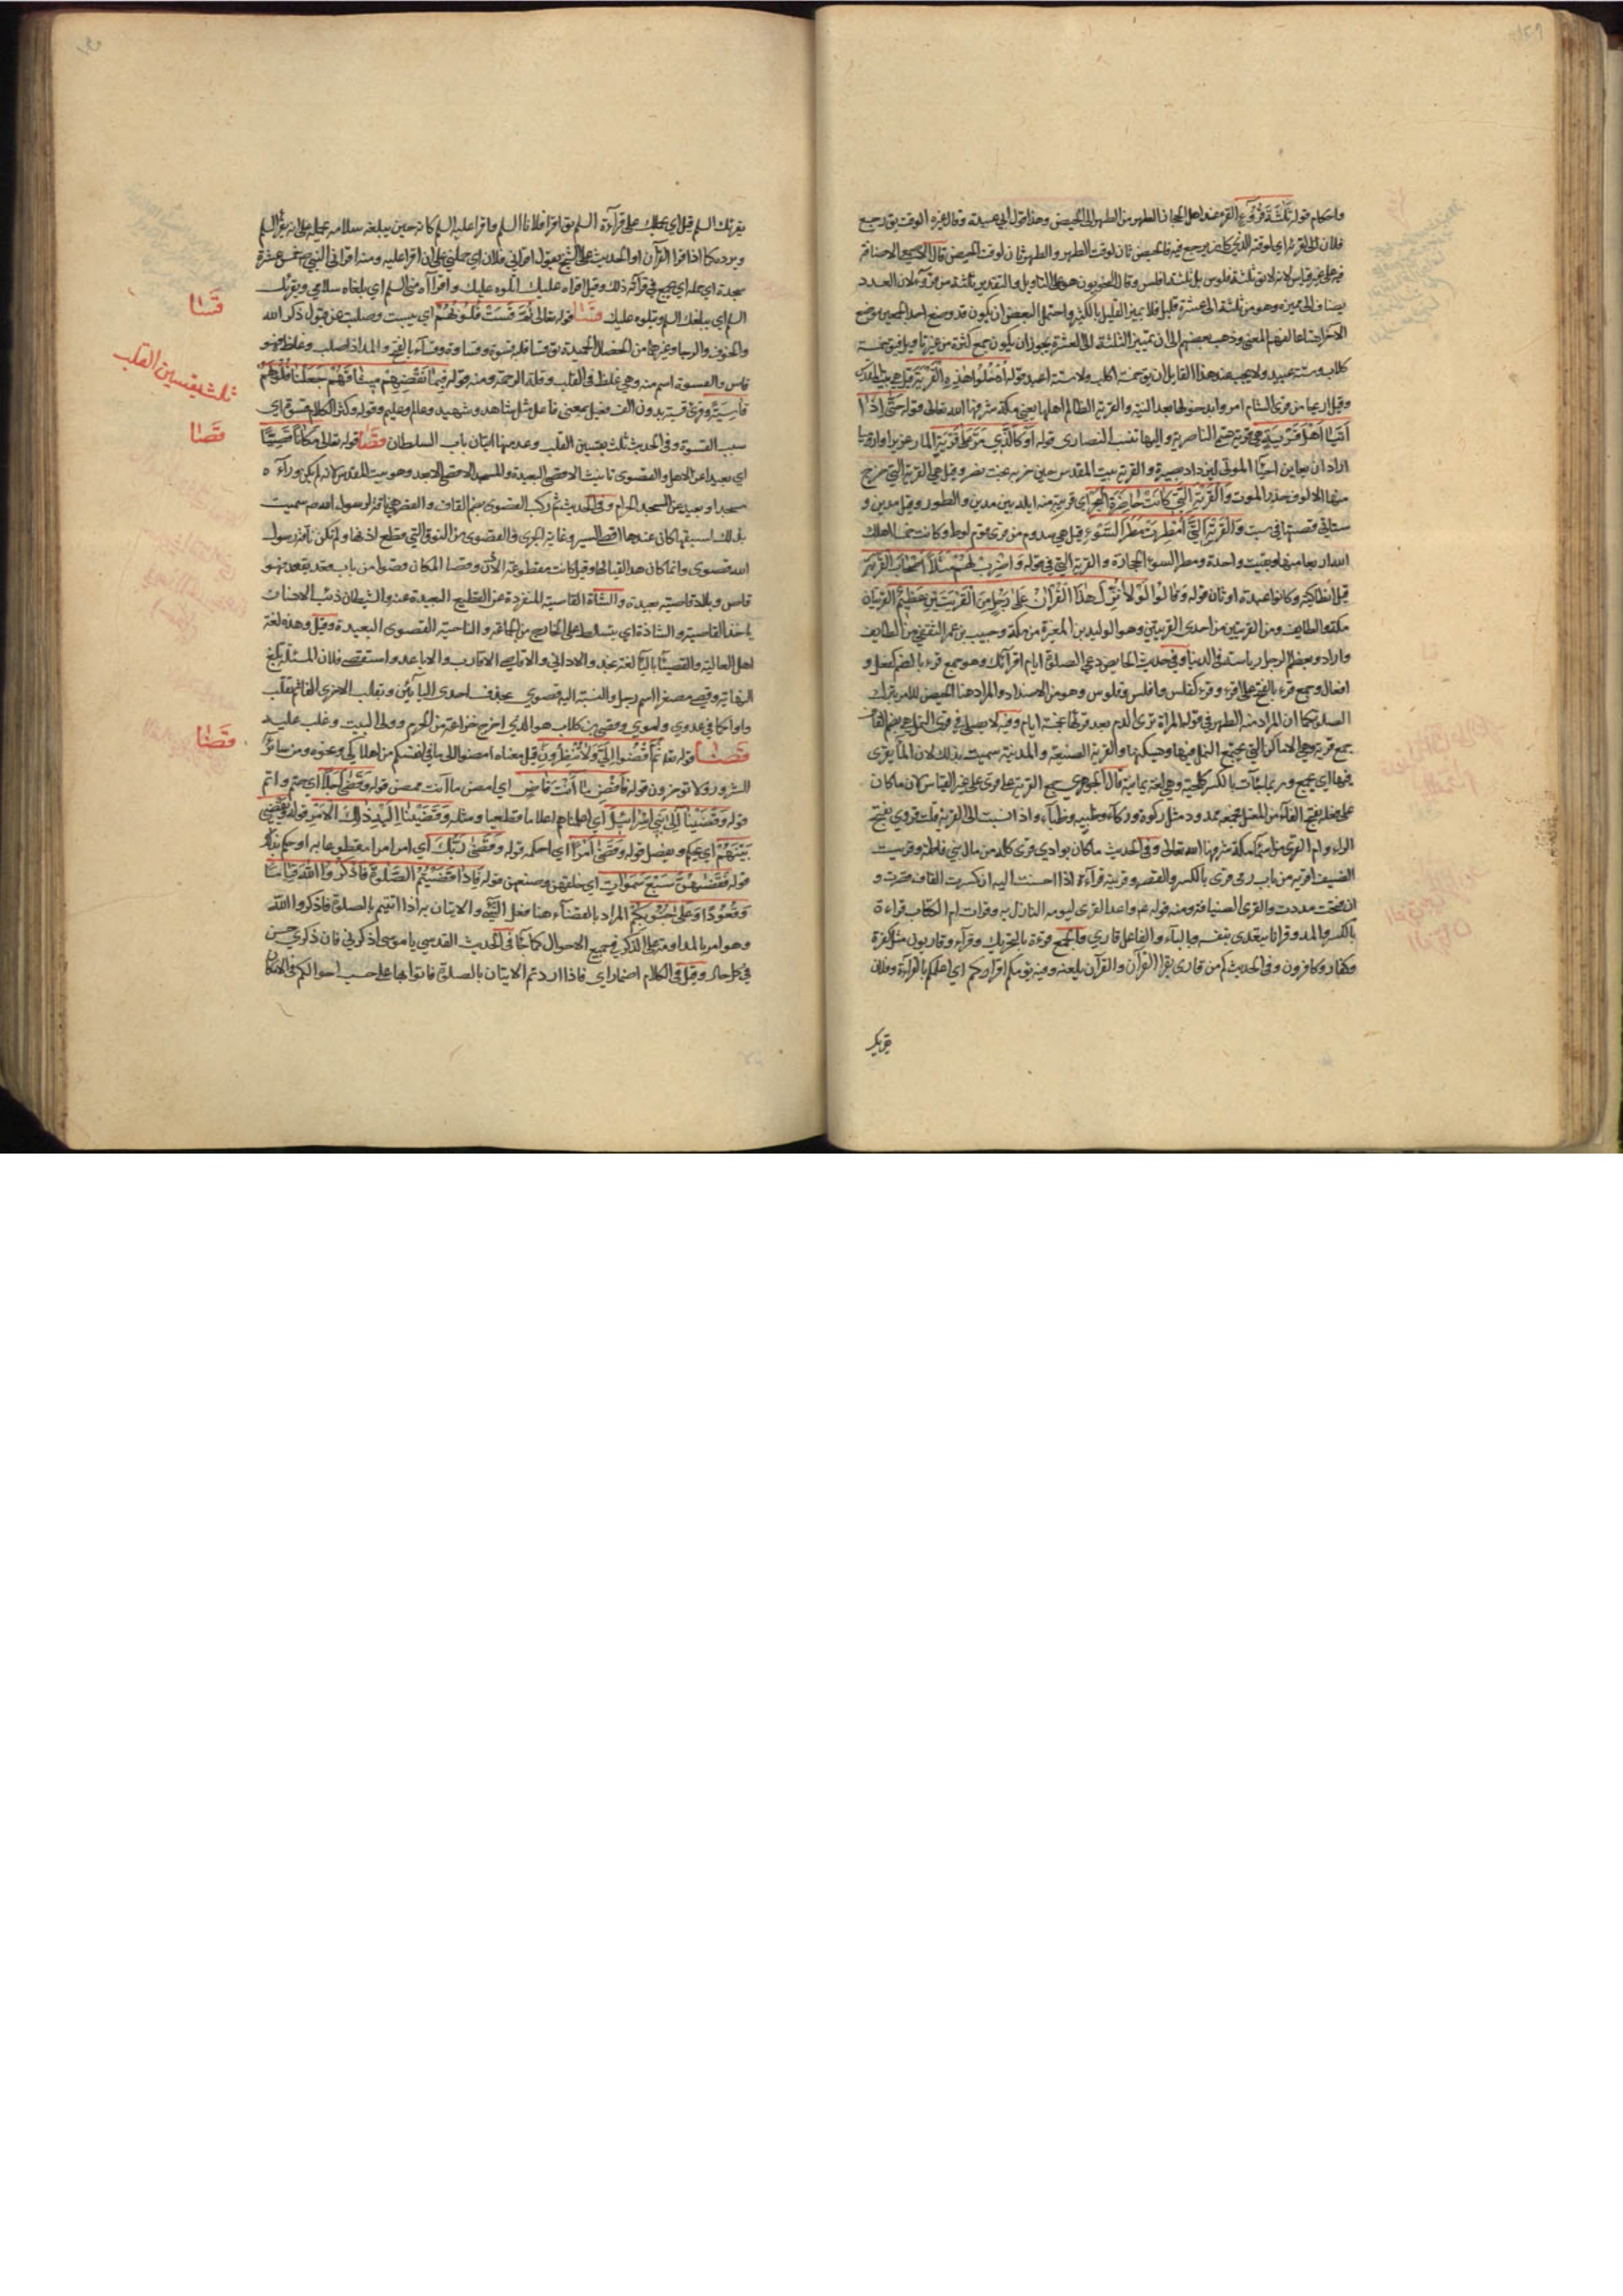 واحكام قوله ثَلٰثَةَ قُرُوٓءٍ القرء عند اهل الحجاز الطهر من الطهر الى الحيض وهذا قول ابي عبيدة وقال غيره الوقت يق رجع
فلان الى قرئه اي لوقته الذي كان يرجع فيه فالحيض ثان لوقت الطهر والطهر ثان لوقت الحيض قال الاصمعي الاضافة
فيه على غير قياس لانه لا يق ثلثة فلوس بل ثلثة افلس وقال النحويون هو على التأويل والتقدير ثلثة من قروء لان العدد
يضاف الى مميزه وهو من ثلثة الى عشرة قليل فلا يميز القليل بالكثير واحتمل البعض ان يكون قد وضع احد الجمعين موضع
الاخر اتساعا لفهم المعنى وذهب بعضهم الى ان تمييز الثلثة الى العشرة يجوز ان يكون جمع كثرة من غير تاويل فيق خمسة
كلاب وستة عبيد ولا يجب عند هذا القايل ان يق خمسة اكلب ولا ستة اعبد قوله ادْخُلُوا هٰذِهِ الْقَرْيَةَ قيل هي بيت المقدس
وقيل اريحا من قرى الشام امروا بدخولها بعد التيه والقرية الظالم اهلها يعني مكة شرفها الله تعالى قوله حَتّٰى اِذٰا
اَتَيٰا اَهْلَ قَرْيَةٍ هي قرية تسمى الناصرية واليها تنسب النصارى قوله اَوْ كَالَّذِي مَرَّ عَلٰى قَرْيَةٍ المار عزير او ارميا
اراد ان يعاين احياء الموتى ليزداد بصيرة والقرية بيت المقدس حين خربه بخت نصر وقيل هي القرية التي خرج
منها الالوف حذر الموت وَالْقَرْيَةِ الَّتِي كَانَتْ حَاضِرَةَ الْبَحْرِ اي قريبة منه ايلة بين مدين والطور وقيل مدين و
ستاتي قصتها في سبت وَالْقَرْيَةِ الَّتِي اُمْطِرَتْ مَطَرَ السَّوْءِ قيل هي سدوم من قرى قوم لوط وكانت خمسا اهلك
الله اربعا منها وبقيت واحدة ومطر السوء الحجارة والقرية التي في قوله وَاضْرِبْ لَهُمْ مَثَلًا اَصْحَابَ الْقَرْيَةِ
قيل انطاكية وكانوا عبدة اوثان قوله وَقَالُوا لَوْلٰا نُزِّلَ هٰذَا الْقُرْاٰنُ عَلٰى رَجُلٍ مِنَ الْقَرْيَتَيْنِ عَظِيمٍ القريتان
مكة والطايف ومن القريتين من احدى القريتين وهو الوليد بن المغيرة من مكة وحبيب بن عمر الثقفي من الطايف
وارادو بعظم الرجل رياسته في الدنيا وفي حديث الحايض دعي الصلوة ايام اقرائك وهو جمع قرء بالضم كقفل و
اقفال ويجمع قرء بالفتح على اقرء وقروء كفلس وافلس وفلوس وهو من الاضداد والمراد هنا الحيض للامر بترك
الصلوة كما ان المراد منه الطهر في قوله المراة ترى الدم بعد قرئها بخمسة ايام وفيه لا يصلى في قرى النمل هي بضم القاف
جمع قرية وهي الاماكن التي يجتمع النمل فيها ويسكنها والقرية الضيعة والمدينة سميت بذلك لان الماء يقرى
فيها اي يجمع وربما جآءت بالكسر كلحية وهي لغة يمانية قال الجوهري جمع القرية على قرى على غير القياس لان ما كان
على فعلة بفتح الفاء من المعتل فجمعه ممدود مثل ركوة وركاء وظبية وظباء واذا نسبت الى القرية قلت قروي بفتح
الراء وام القرى من اسماء مكة شرفها الله تعالى وفي الحديث ما كان بوادي قرى كله من مال بني فاطمة وقريت
الضيف اقريه من باب رمى قرى بالكسر والقصر وقريته قرآءة اذا احسنت اليه ان كسرت القاف قصرت و
ان فتحت مددت والقرى الضيافة ومنه قوله عم واعد القرى ليومه النازل به وقرات ام الكتاب قراءة
بالكسر والمد وقرانا يتعدى بنفسه وبالباء والفاعل قاري والجمع قرءة بالتحريك وقراء وقاريون مثل كفرة
وكفار وكافرون وفي الحديث كم من قارى يقرا القرآن والقرآن يلعنه وفيه يؤمكم اقراكم اي اعلمكم بالقراءة وفلان
يقرئك
يقرئك السلم قيل اي يحملك على قراءة السلم يق اقرا فلانا السلم واقرا عليه السلم كانه حين يبلغه سلامه يحمله على ان يقرأ السلم
ويرده كما اذا قرا القرآن او الحديث على الشيخ يقول اقراني فلان اي حملني على ان اقرا عليه ومنه اقراني النبي ص خمس عشرة
سجدة اي حمله اي يجمع في قرآئته ذلك وقيل اقراه عليك اتلوه عليك واقراه مني السلم اي بلغاه سلامي ويقرئك
السلم اي يبلغك السلم ويتلوه عليك قَسٰا قوله تعالى ثُمَّ قَسَتْ قُلُوبُهُمْ اي يبست وصلبت عن قبول ذكر الله
والخوف والرجا وغيرها من الخصال الحميدة يق قسا قلبه قسوة وقساوة وقسآء بالفتح والمد اذا صلب وغلظ فهو
قاس والقسوة اسم منه وهي غلظ في القلب وقلة الرحمة ومنه قوله فَبِمٰا نَقْضِهِمْ مِيثَاقَهُمْ جَعَلْنَا قُلُوبَهُمْ
قٰاسِيَةً وقرئ قسية بدون الف فعيل بمعنى فاعل مثل شاهد وشهيد وعالم وعليم وقوله وكثرة الكلام قسوة اي
سبب القسوة وفي الحديث ثلث يقسين القلب وعد منها اتيان باب السلطان قَصٰا قوله تعالى مَكٰانًا قَصِيًّا
اي بعيدا عن الاهل والقصوى تانيث الاقصى البعيدة والمسجد الاقصى الابعد وهو بيت المقدس لانه لم يكن وراءه
مسجد او بعيد عن المسجد الحرام وفي الحديث ثم ركب القصوى بضم القاف والقصر هي ناقة لرسول الله ص سميت
بذلك لسبقها كان عندها اقصى السير وغاية الجري والقصوى من النوق التي قطع اذنها ولم تكن ناقة رسول
الله قصوى وانما كان هذا لقبا لها وقيل كانت مقطوعة الاذن وقصا المكان قصوا من باب قعد يقعد فهو
قاص وبلاد قاصية بعيدة والشاة القاصية المنفردة عن القطيع البعيدة عنه والشيطان ذئب الانسان
ياخذ القاصية والشاذة اي يتسلط على الخارج من الجماعة والناحية القصوى البعيدة وقيل وهذه لغة
اهل العالية والقصيا بالياء لغة نجد والاداني والاقاصي الاقارب والاباعد واستقصى فلان المسئلة بلغ
النهاية وقصي مصغرا اسم رجل والنسبة اليه قصوي بحذف احدى الياءين وتقلب الاخرى الفا ثم تقلب
واوا كما في عدوي واموي وقصي بن كلاب هو الذي اخرج خزاعة من الحرم وولى البيت وغلب عليه
قَضٰا قوله تعا ثُمَّ اقْضُوا اِلَيَّ وَلٰا تُنْظِرُونِ قيل معناه امضوا الى ما في انفسكم من اهلاكي ونحوه ومن سائر
الشرور ولا توخرون قوله فَاقْضِ مٰا اَنْتَ قٰاضٍ اي امض ما انت ممض قوله وَقَضٰى اَجَلًا اي حتم واتم
قوله وَقَضَيْنٰا اِلٰى بَنِي اِسْرٰائِيلَ اي اعلمناهم اعلاما قطعيا ومثله وَقَضَيْنٰا اِلَيْهِ ذٰلِكَ الْاَمْرَ قوله يَقْضِي
بَيْنَهُمْ اي يحكم ويفصل قوله وَقَضٰى اَمْرًا اي احكمه قوله وَقَضٰى رَبُّكَ اي امر امرا مقطوعا به او حكم بذلك
قوله فَقَضٰيهُنَّ سَبْعَ سَمٰوٰاتٍ اي خلقهن وصنعهن قوله فَاِذٰا قَضَيْتُمُ الصَّلٰوةَ فَاذْكُرُوا اللّٰهَ قِيٰامًا
وَقُعُودًا وَعَلٰى جُنُوبِكُمْ المراد بالقضآء هنا فعل الشَّيْء والاتيان به اي اذا اتيتم بالصلوة فاذكروا اللّٰه
وهو امر بالمداومة على الذكر في جميع الاحوال كما جآء في الحديث القدسي يا موسى اذكرني فان ذكري حسن
في كل حال وقيل في الكلام اضمار اي فاذا اردتم الاتيان بالصلوة فاتوا بها على حسب احوالكم في الامكان
قَسٰا
ثلث يقسين القلب
قَصٰا
قَضٰا